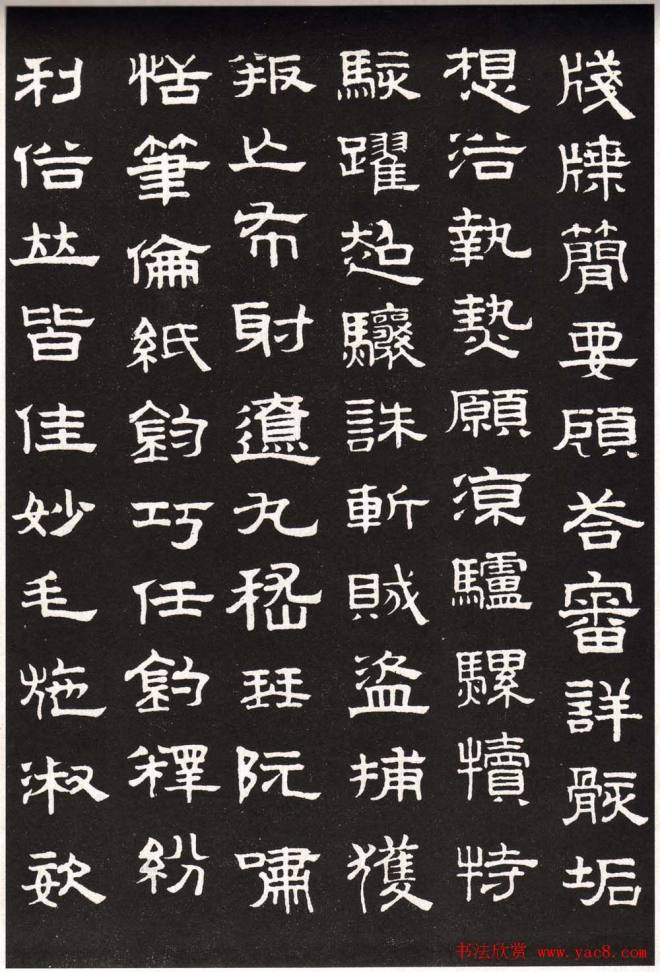 牋牒簡要顧荅審詳骸垢
想浴執熱願涼驢騾犢特
駭躍超驤誅斬賊盜捕獲
叛亡布射遼丸嵇琴阮嘯
恬筆倫紙鈞巧任釣釋紛
利俗竝皆佳妙毛施淑姿
书法欣赏 www.yac8.com